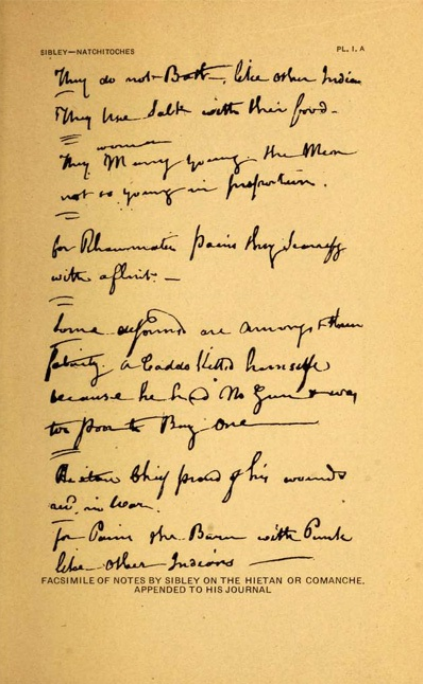 SIBLEY—NATCHITOCHES
PL. 1. A
They do not Bath, like other Indian
They Use Salt with their food—
women
They Marry young. the Men
not so young in proportion.
for Rheumatic pains they Scarefy
with a flint. —
Some deformed are amongst them
a Caddo Killed himself
because he had No Gun & was
too poor to Buy one
Hietan Chief proud of his wounds
in War.
for Pains the Burn with Punk
like other Indians —
FACSIMILE OF NOTES BY SIBLEY ON THE HIETAN OR COMANCHE.
APPENDED TO HIS JOURNAL